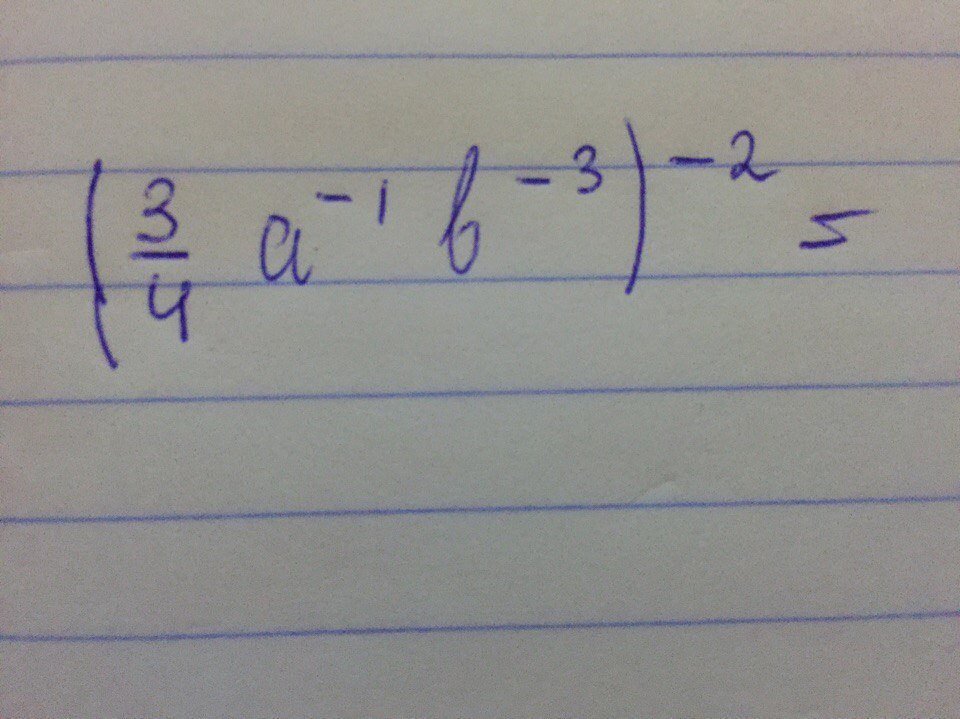 (3/4 a^-1 b^-3)^-2 =